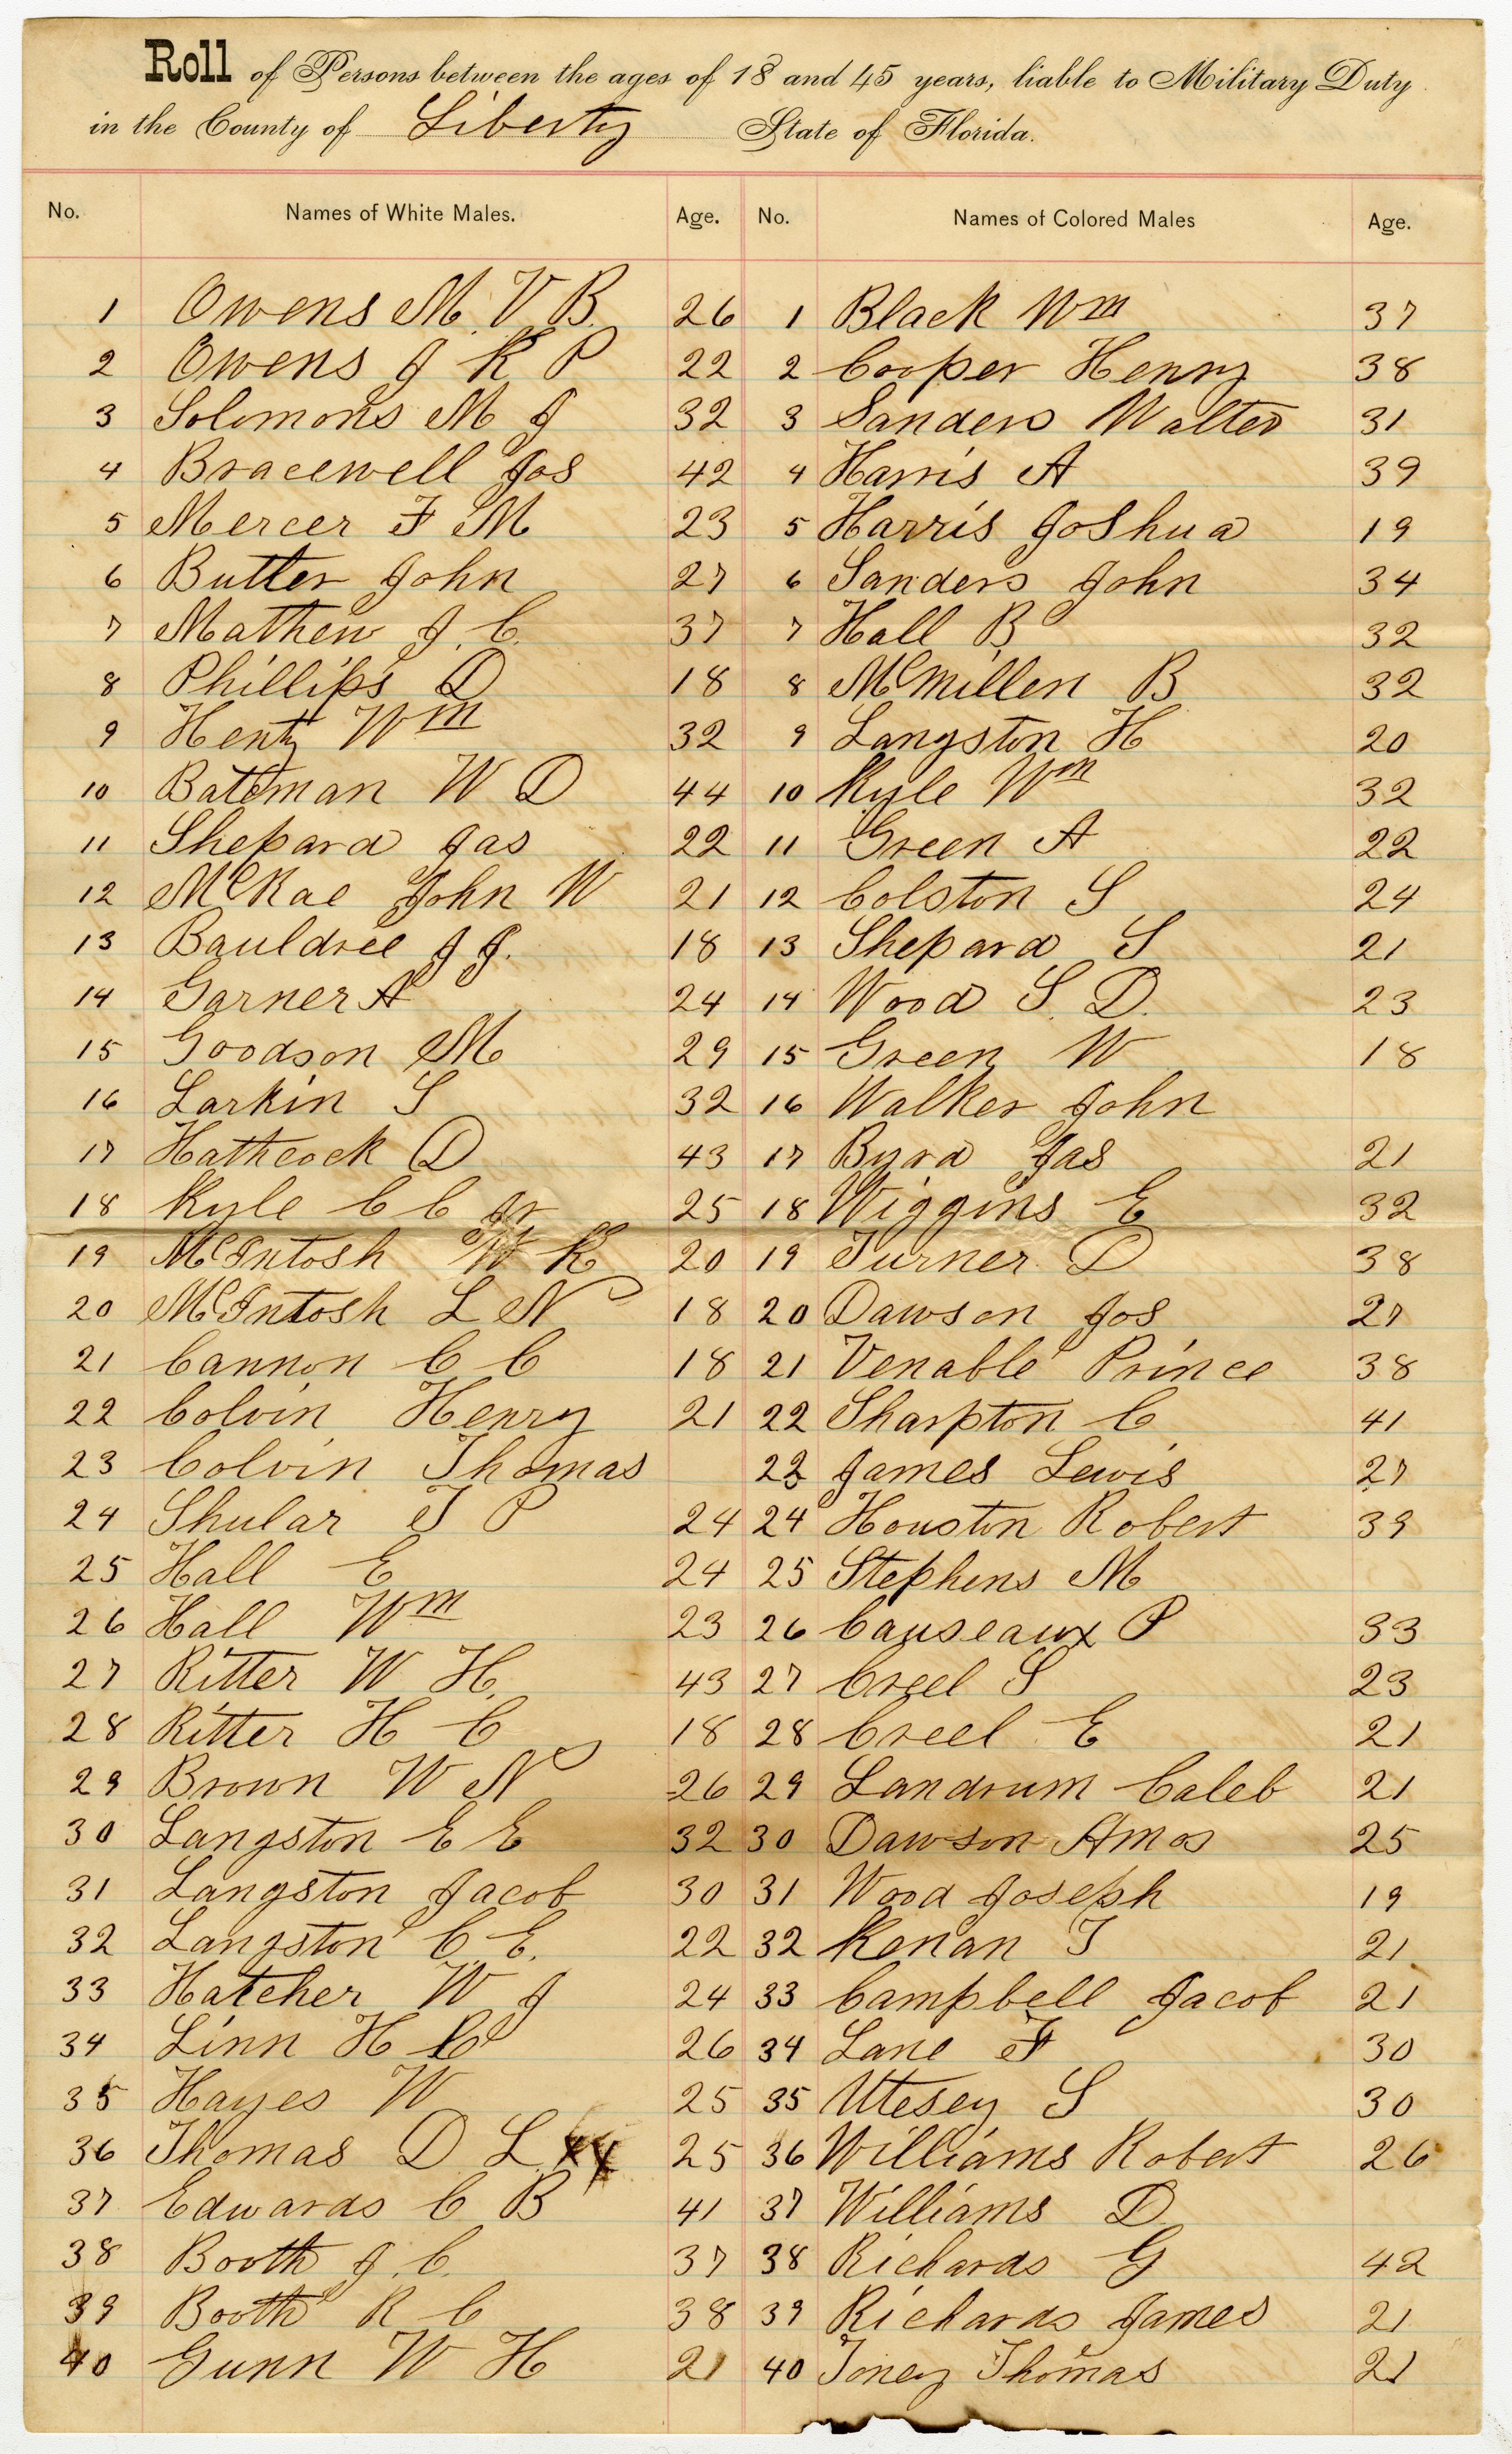 Roll of Persons between the ages of 18 and 45 years, liable to Military Duty
in the County of Liberty State of Florida.
No. Names of White Males. Age. No. Names of Colored Males Age.
1 Owens M. V. B. 26 1 Black Wm 37
2 Owens J K P 22 2 Cooper Henry 38
3 Solomons M J 32 3 Sanders Walter 31
4 Bracewell Jos 42 4 Harris A 39
5 Mercer F M 23 5 Harris Joshua 19
6 Butler John 27 6 Sanders John 34
7 Mathew J. C. 37 7 Hall B 32
8 Phillips D 18 8 McMillen B 32
9 Hentz Wm 32 9 Langston H 20
10 Bateman W D 44 10 Kyle Wm 32
11 Shepard Jas 22 11 Green A 22
12 McRae John W 21 12 Colston S 24
13 Bauldree J J. 18 13 Shepard S 21
14 Garner A 24 14 Wood S. D. 23
15 Goodson M 29 15 Green W 18
16 Larkin S 32 16 Walker John
17 Hathcock D 43 17 Byrd Jas 21
18 Kyle C C Jr 25 18 Wiggins E 32
19 McIntosh W K 20 19 Turner D 38
20 McIntosh L N 18 20 Dawson Jos 27
21 Cannon C C 18 21 Venable Prince 38
22 Colvin Henry 21 22 Sharpton C 41
23 Colvin Thomas 23 James Lewis 27
24 Shular T P 24 24 Houston Robert 39
25 Hall E 24 25 Stephens M
26 Hall Wm 23 26 Causeaux P 33
27 Ritter W H. 43 27 Creel S 23
28 Ritter H C 18 28 Creel E 21
29 Brown W N 26 29 Landrum Caleb 21
30 Langston E E 32 30 Dawson Amos 25
31 Langston Jacob 30 31 Wood Joseph 19
32 Langston C. E. 22 32 Kenan T 21
33 Hatcher W J 24 33 Campbell Jacob 21
34 Linn H C 26 34 Lane F 30
35 Hayes W 25 35 Utesey S 30
36 Thomas D L xx 25 36 Williams Robert 26
37 Edwards C B 41 37 Williams D
38 Booth J. C. 37 38 Richards G 42
39 Booth R C 38 39 Richards James 21
40 Gunn W H 21 40 Toney Thomas 21